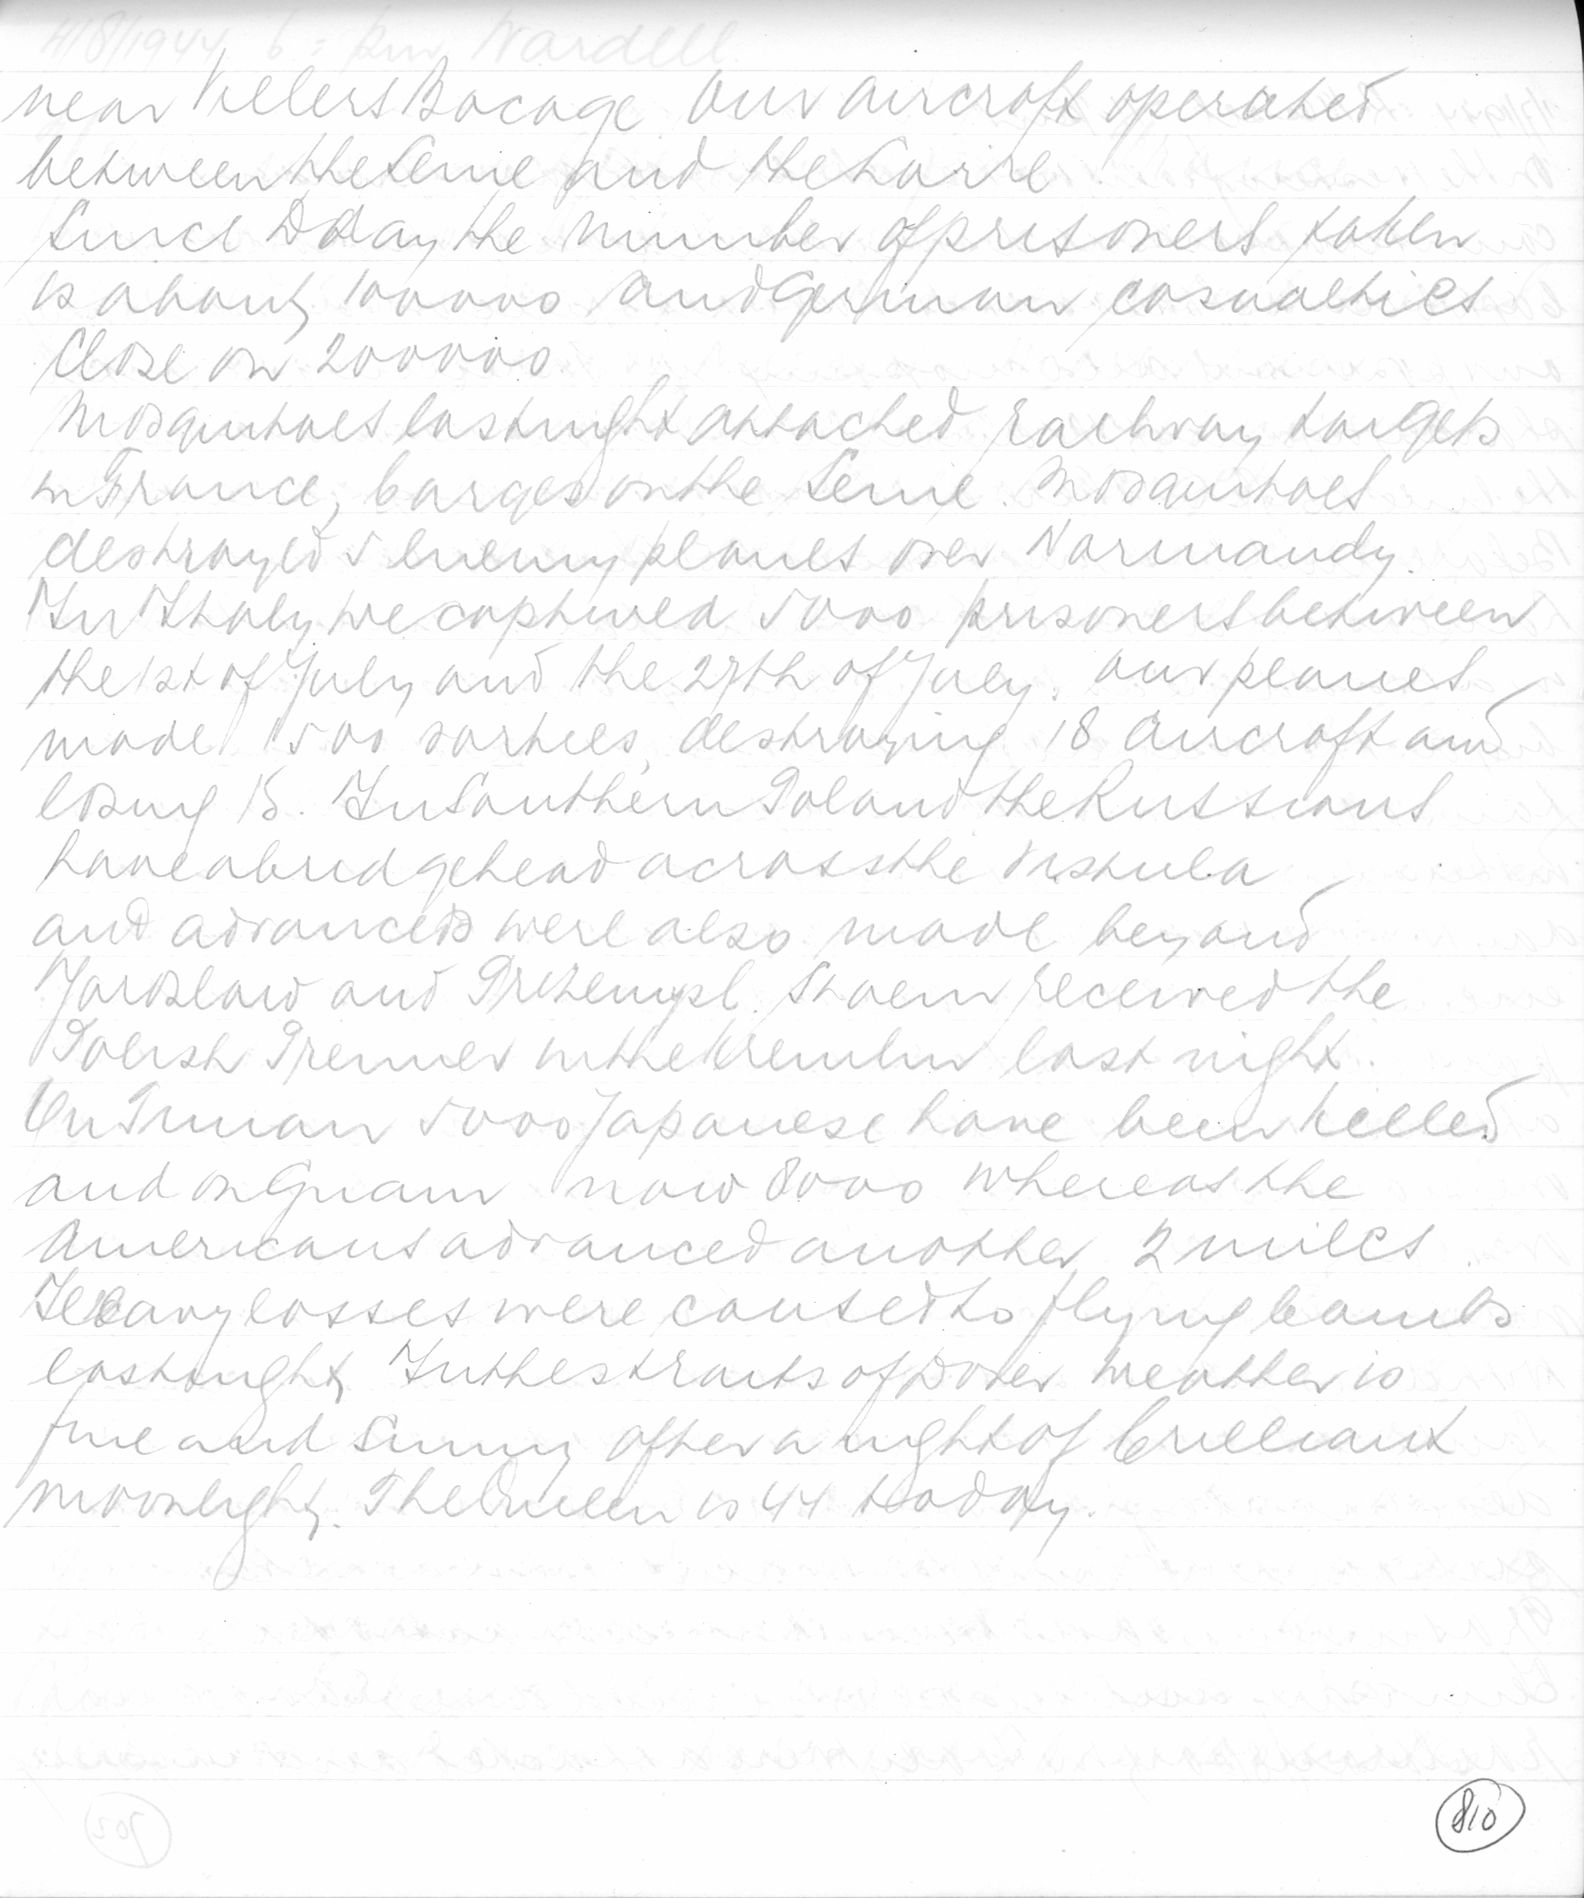 4/8/1944 6 = pm Wardell
near Villers Bocage our aircraft operated
between the Seine and the Loire
Since D day the number of prisoners taken
is about 100000 and German casualties
close on 200000
Mosquitoes last night attacked railway targets
in France, barges on the Seine. Mosquitoes
destroyed 5 enemy planes over Normandy.
In Italy we captured 5000 prisoners between
the 1st of July and the 27th of July. our planes
made 1500 sorties, destroying 18 aircraft and
losing 15. In Southern Poland the Russians
have a bridgehead across the Vistula
and advances were also made beyond
Jaroslaw and Przemysl. Stalin received the
Polish Premier in the Kremlin last night.
On Tinian 5000 Japanese have been killed
and on Guam now 8000 whereas the
Americans advanced another 2 miles.
Heavy losses were caused to flying bombs
last night. In the straits of Dover weather is
fine and sunny after a night of brilliant
moonlight. The Queen is 44 today.
810